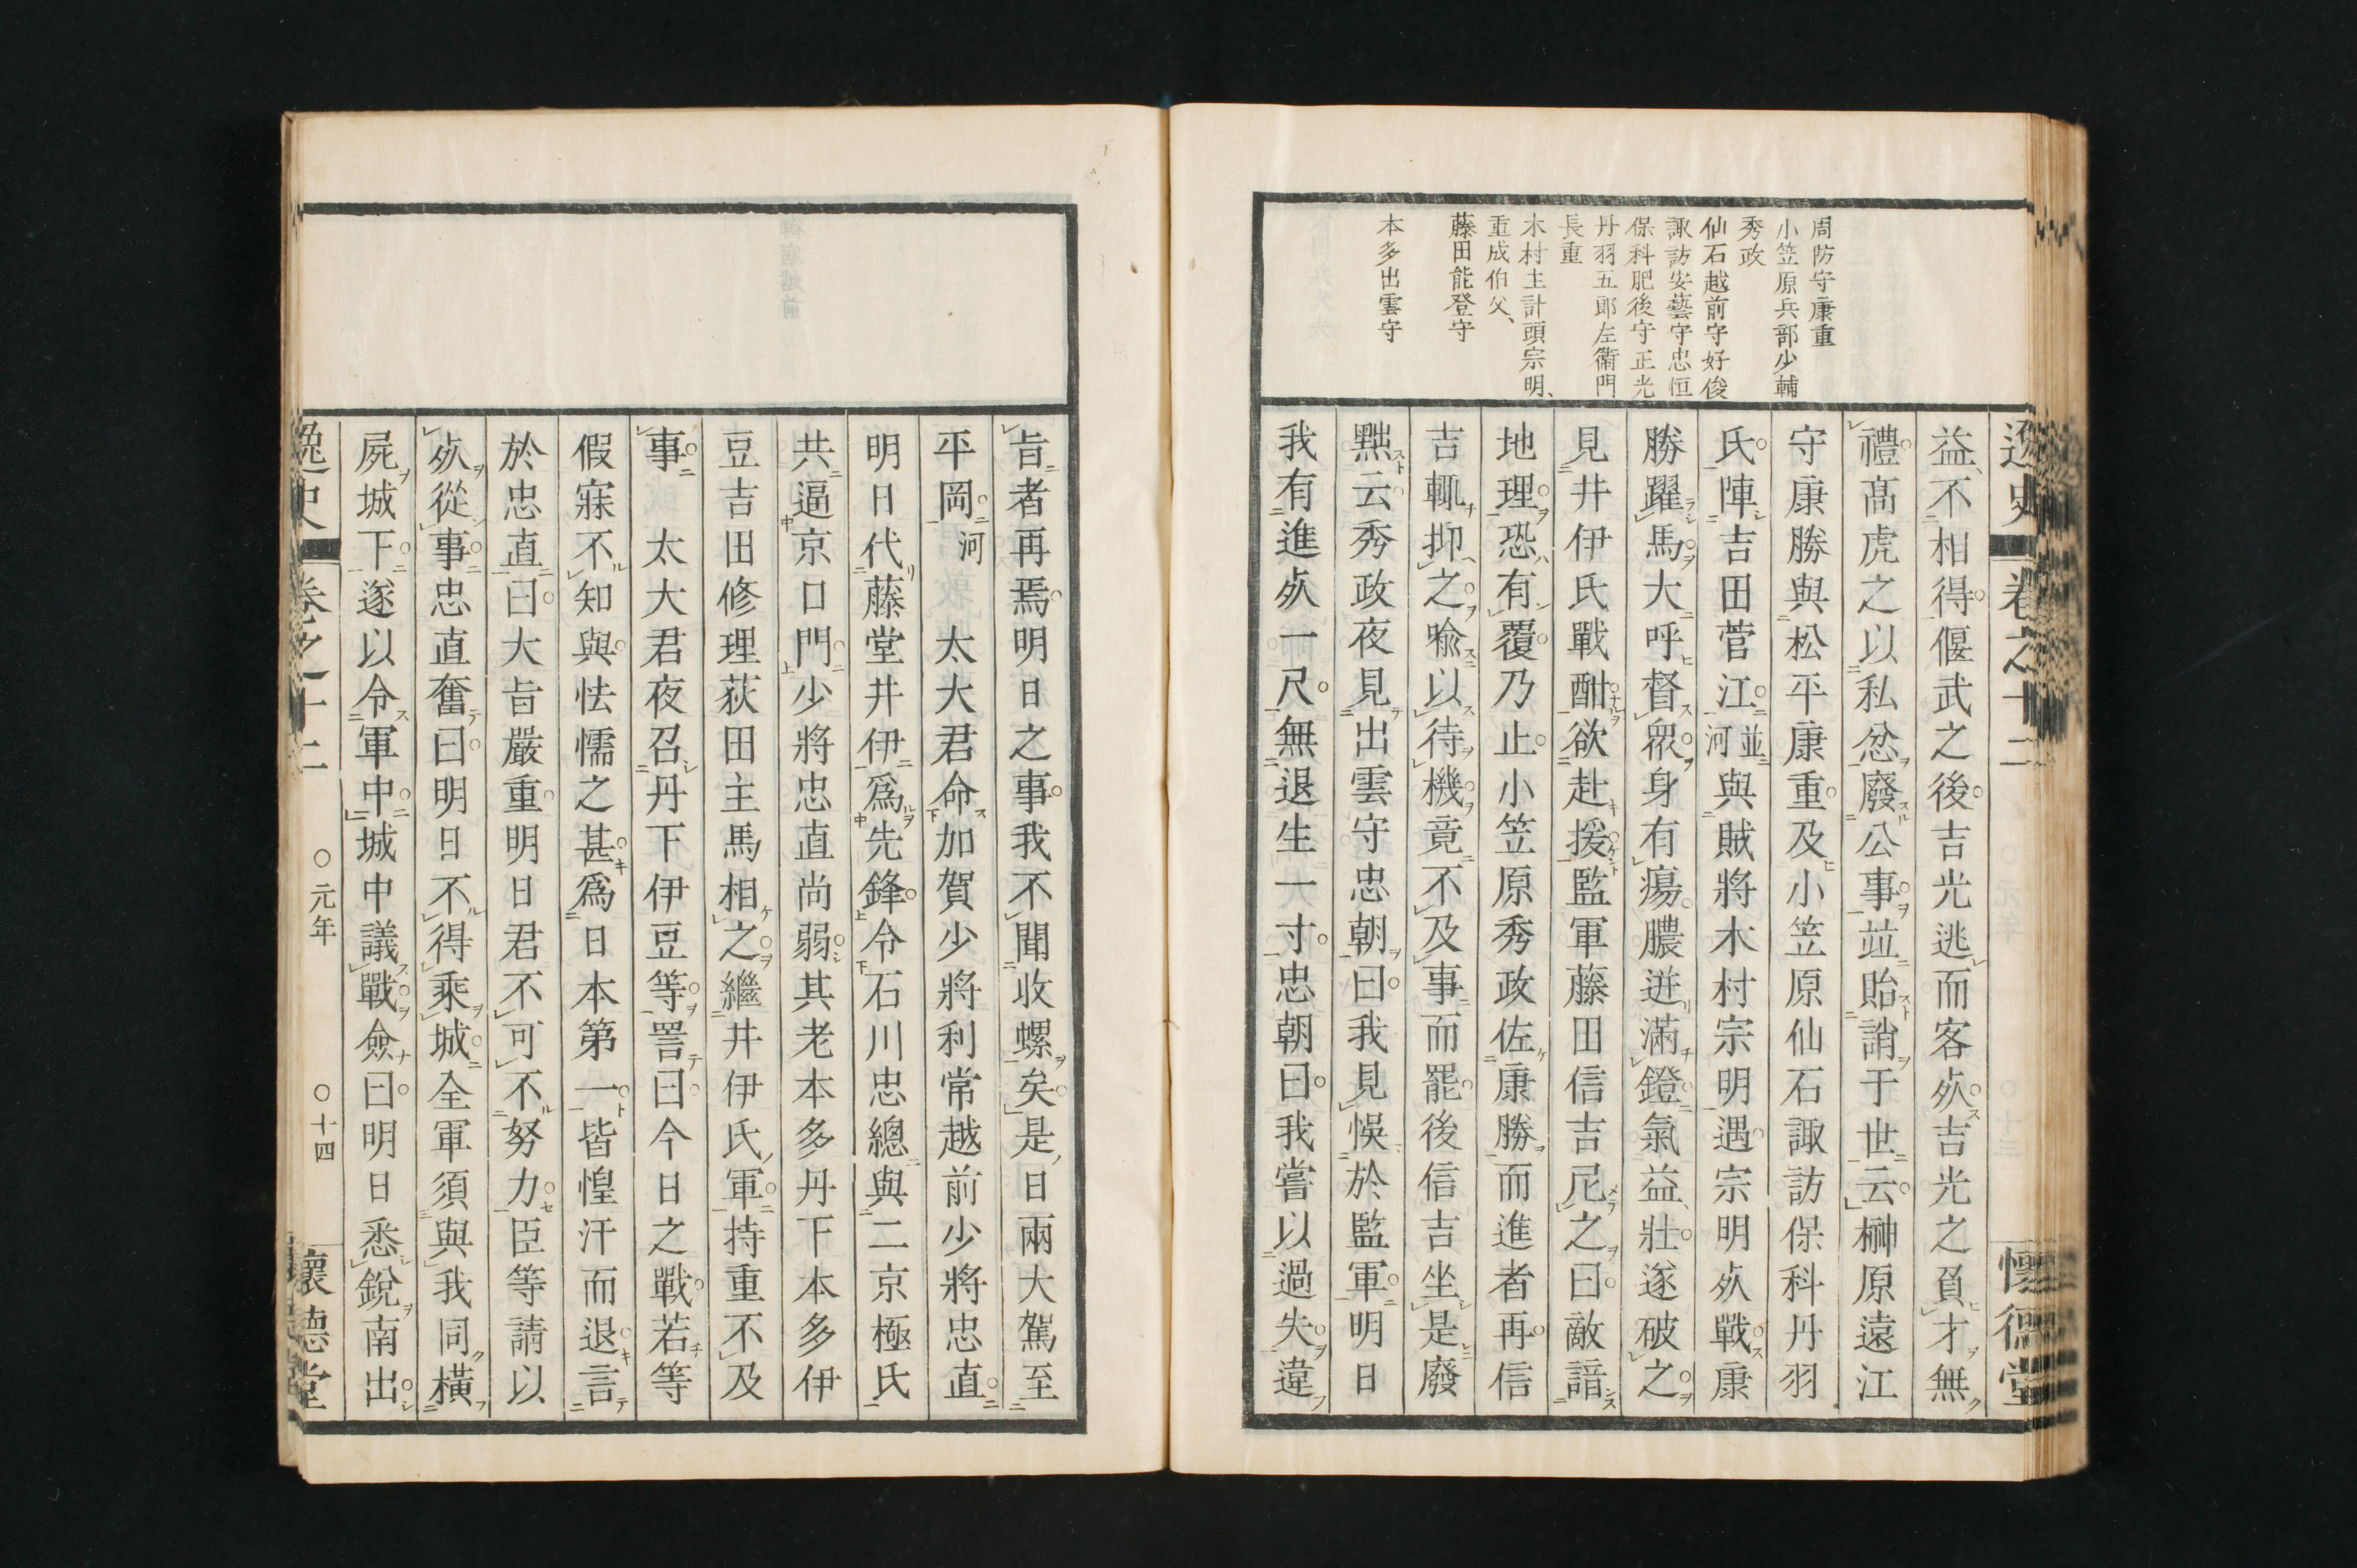 周防守康重
小笠原兵部少輔
秀政
仙石越前守好俊
諏訪安藝守忠恒
保科肥後守正光
丹羽五郎左衞門
長重
木村主計頭宗明、
重成伯父、
藤田能登守
本多出雲守
逸史 卷之十二 懷德堂
益、不相得。偃武之後。吉光逃而客死。吉光之負才無
禮。高虎之以私忿廢公事。竝貽誚于世云。榊原遠江
守康勝與松平康重。及小笠原仙石諏訪保科丹羽
氏。陣吉田菅江。並河與賊將木村宗明遇。宗明死戰。康
勝躍馬大呼督衆。身有瘍。膿迸滿鐙。氣益、壯。遂破之。
見井伊氏戰酣。欲赴援。監軍藤田信吉尼之曰。敵諳
地理。恐有覆。乃止。小笠原秀政佐康勝而進者再。信
吉輒抑之。喩以待機。竟不及事而罷。後信吉坐是廢
黜云。秀政夜見出雲守忠朝曰。我見悞於監軍。明日
我有進死一尺。無退生一寸。忠朝曰。我嘗以過失違
旨者再焉。明日之事。我不聞收螺矣。是日兩大駕至
平岡。河太大君命加賀少將利常越前少將忠直。
明日代藤堂井伊爲先鋒。令石川忠總與二京極氏
共逼京口門。少將忠直尚弱。其老本多丹下本多伊
豆吉田修理荻田主馬相之。繼井伊氏軍。持重不及
事。太大君夜召丹下伊豆等。詈曰。今日之戰。若等
假寐不知與。怯懦之甚。爲日本第一。皆惶汗而退。言
於忠直曰。大旨嚴重。明日君不可不努力。臣等請以
死從事。忠直奮曰。明日不得乘城。全軍須與我同橫
屍城下。遂以令軍中。城中議戰。僉曰。明日悉銳南出。
逸史 卷之十二 〇元年 〇十四 懷德堂